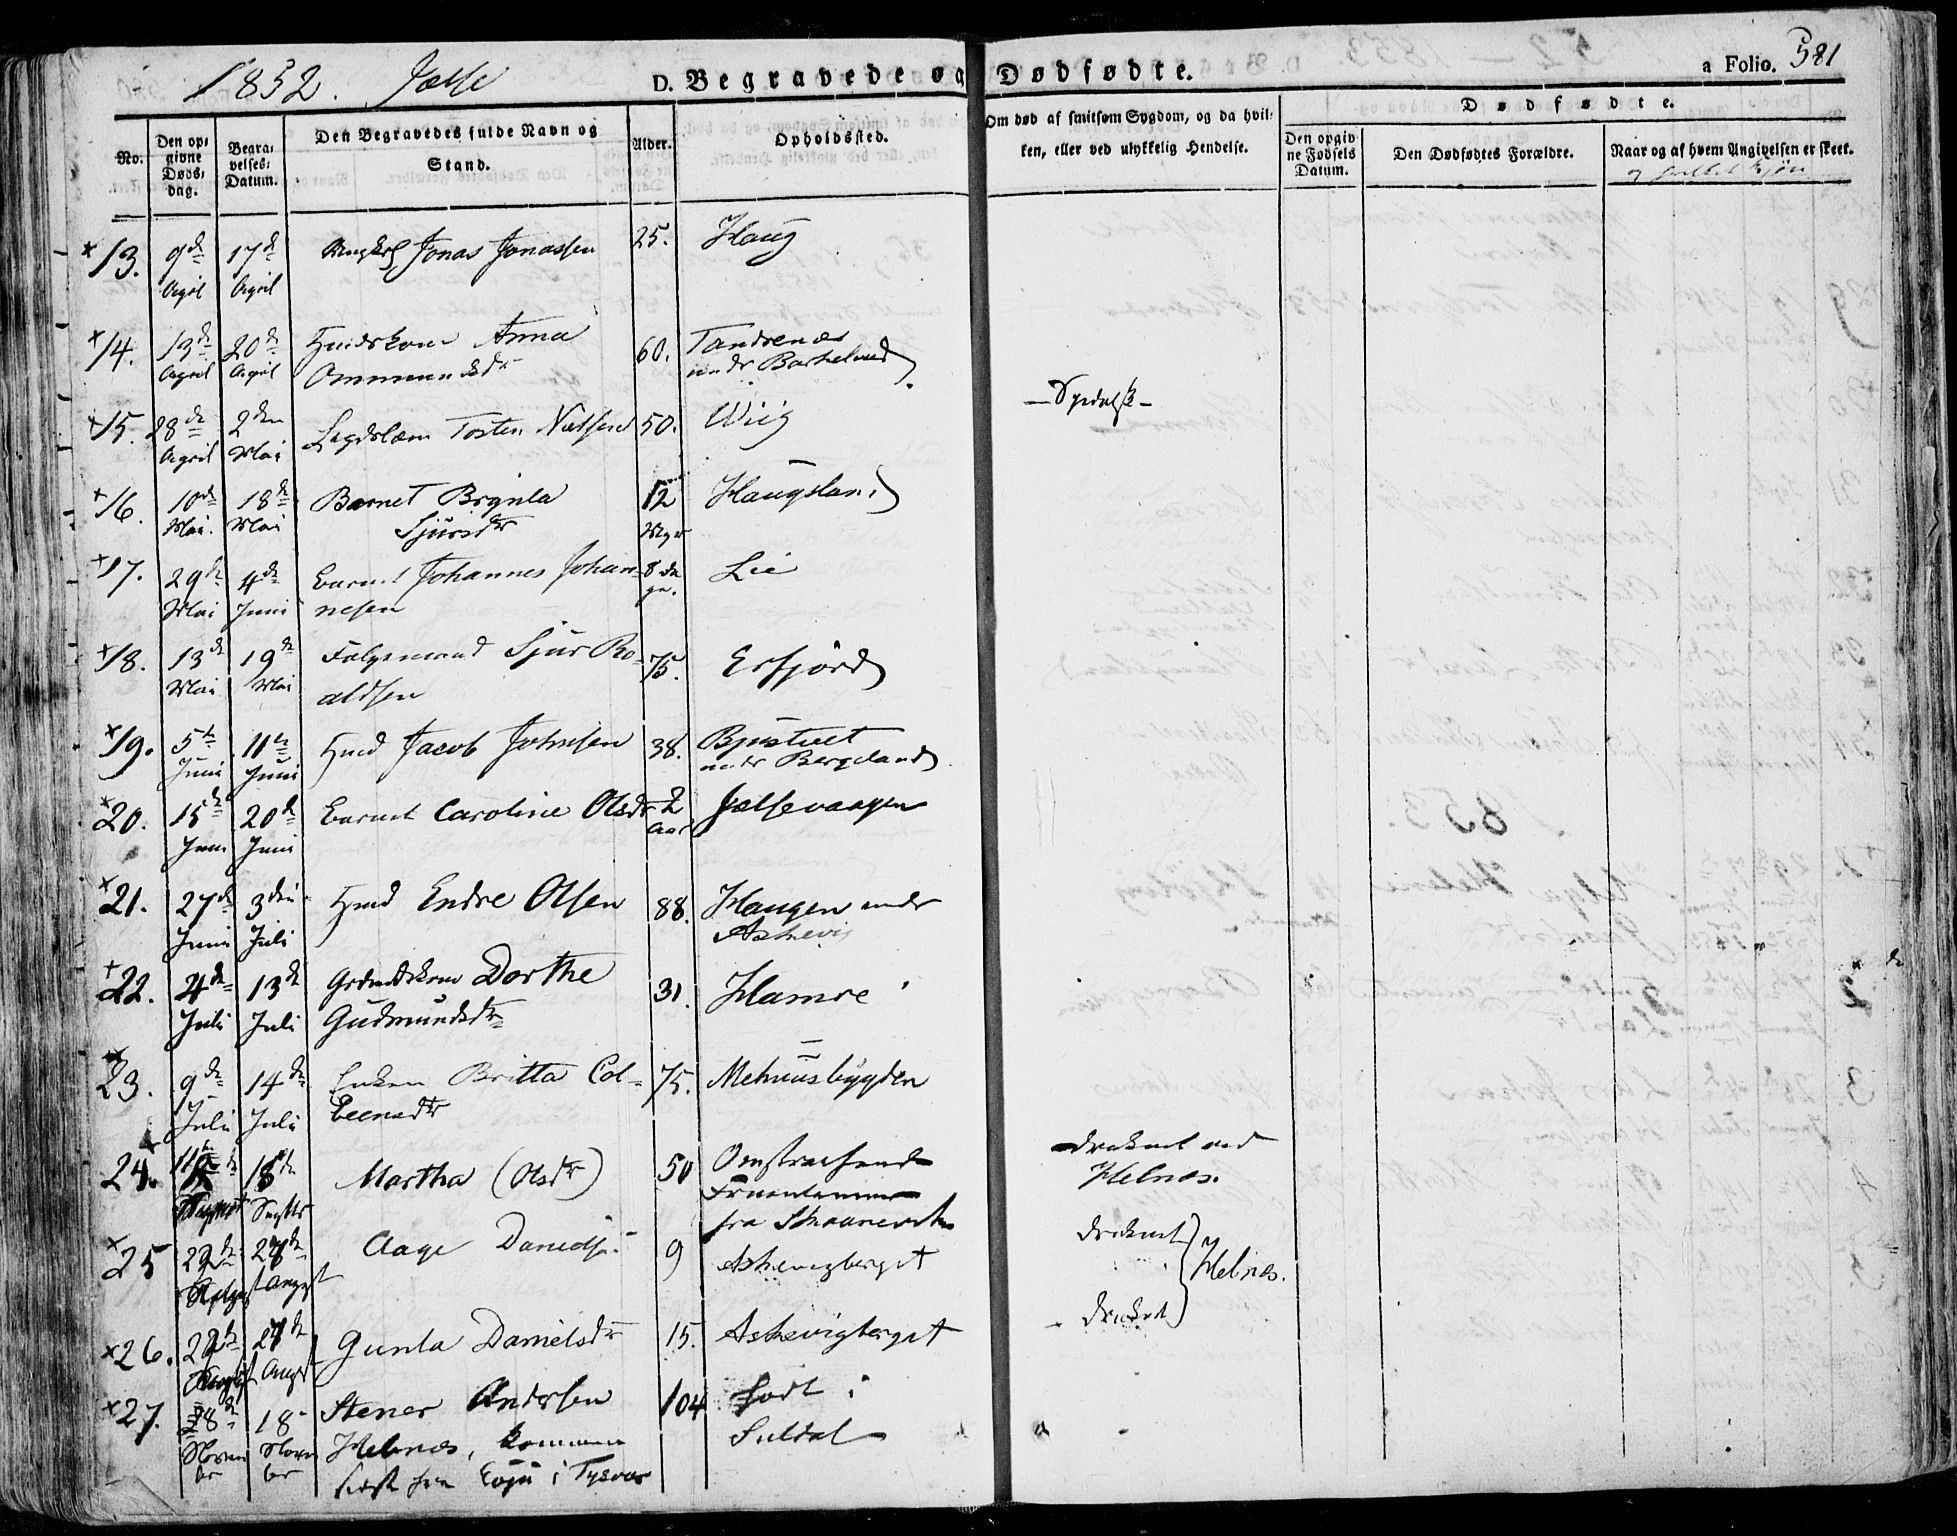 1852. Jælse
D. Begravede og Dødfødte.
a Folio. 581
No.
Den op:
givne
Døds:
dag.
Begra:
velses:
Datum.
Den Begravedes fulde Navn og
Stand.
Alder.
Opholdssted.
Om død af smitsom Sygdom, og da hvil:
ken, eller ved ulykkelig Hendelse.
Dødfødte.
Den opgiv
ne Fødsels
Datum.
Den Dødfødtes Forældre.
Naar og af hvem Angivelsen er skeet.
13. 9de April 17de April Jonas Jonassen 25. Haug
14. 13de April 20de April Anna
Ommundsdr 60. Tandrenæs
under Barkeland
15. 28de April 2den Mai Torsten 50. Wiig
16. 10de Mai. 18de Mai Barnet Brynla
Sjursdr 12 Haugsland
17. 29de Mai 4de Juni Barnet Johannes Johan-
nesen 8 da
ge. Lie
18. 13de Mai 19de Mai Sjur Ro-
aldsen 75. Erfjord
19. 5te Juni 11te Juni Hmd Jacob Johnsen 38.
under Bergeland
20. 15de Juni 20de Juni Barnet Caroline Olsdr 2
Aar Jælsevaagen
21. 27de Juni 3die Juli Hmd Endre Olsen 88. Haugen under
Askevig
22. 4de Juli 13de Juli Dorthe
Gudmundsdr 31. Hamre
23. 9de Juli 14de Juli Enken Britta Col-
beensdr 75. Mehuusbygden
24. 18de Septbr Martha (Olsdr) 50 Omstreifende
Fruentimmer
fra Skaanevik
druknet ved
Helnæs.
25 27de August Aage Danielsen 9 Askevigberget
druknet
Helnæs.
26. 27de August Gunla Danielsdr 15. Askevigberget
druknet
27. 28de Novem
ber 18 Novem
ber Stener Andersen
Helnæs, kommen
fra i Tysvær 104 født i
Suldal